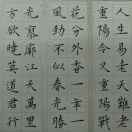 人生易老天難老
重陽今又重陽戰
花分外香一年一
風勁不似春光勝
光寥廓江天萬里
方欲曉莫道君行